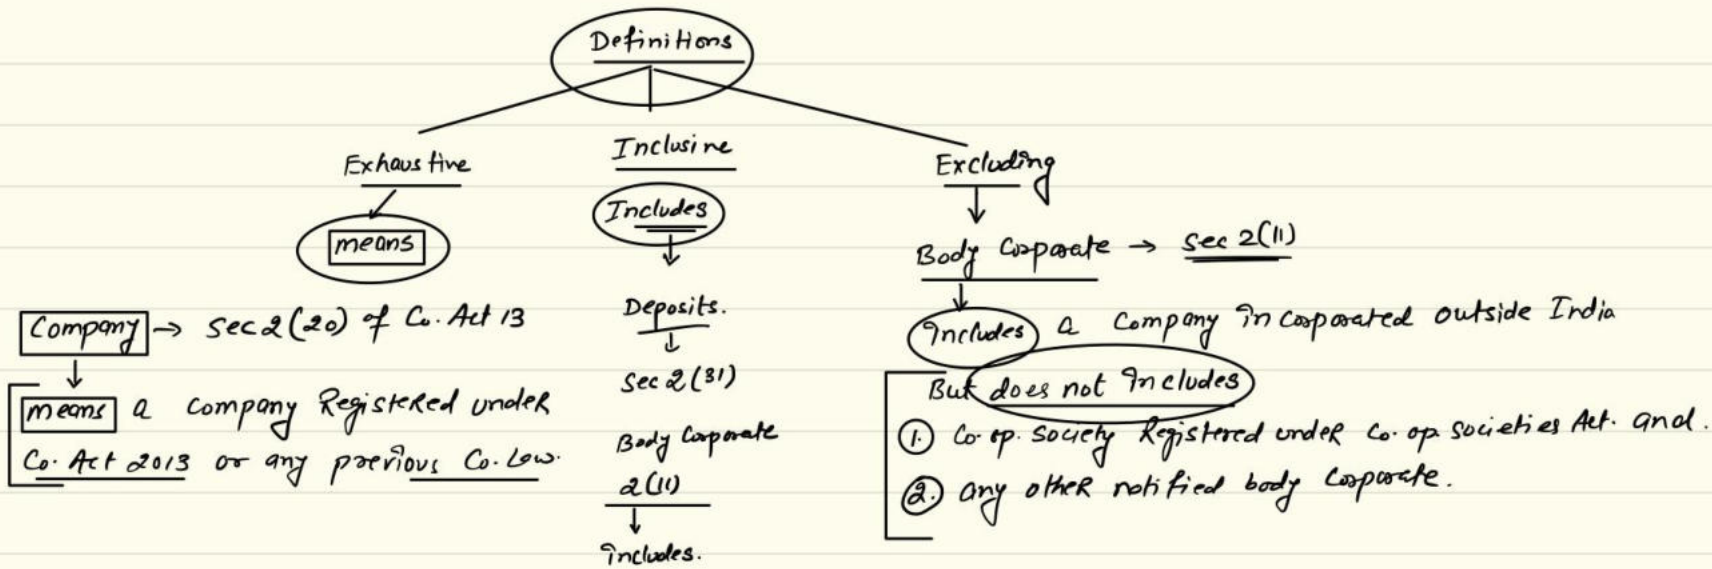 Definitions
Exhaustive
means
Company → Sec 2(20) of Co. Act 13
means a company Registered under
Co. Act 2013 or any previous Co. Law.
Inclusive
Includes
Deposits.
Sec 2(31)
Body Corporate
2(11)
includes.
Excluding
Body Corporate → Sec 2(11)
includes a company incorporated outside India
But does not includes
1. Co. op. Society Registered under Co. op. Societies Act. and.
2. any other notified body Corporate.